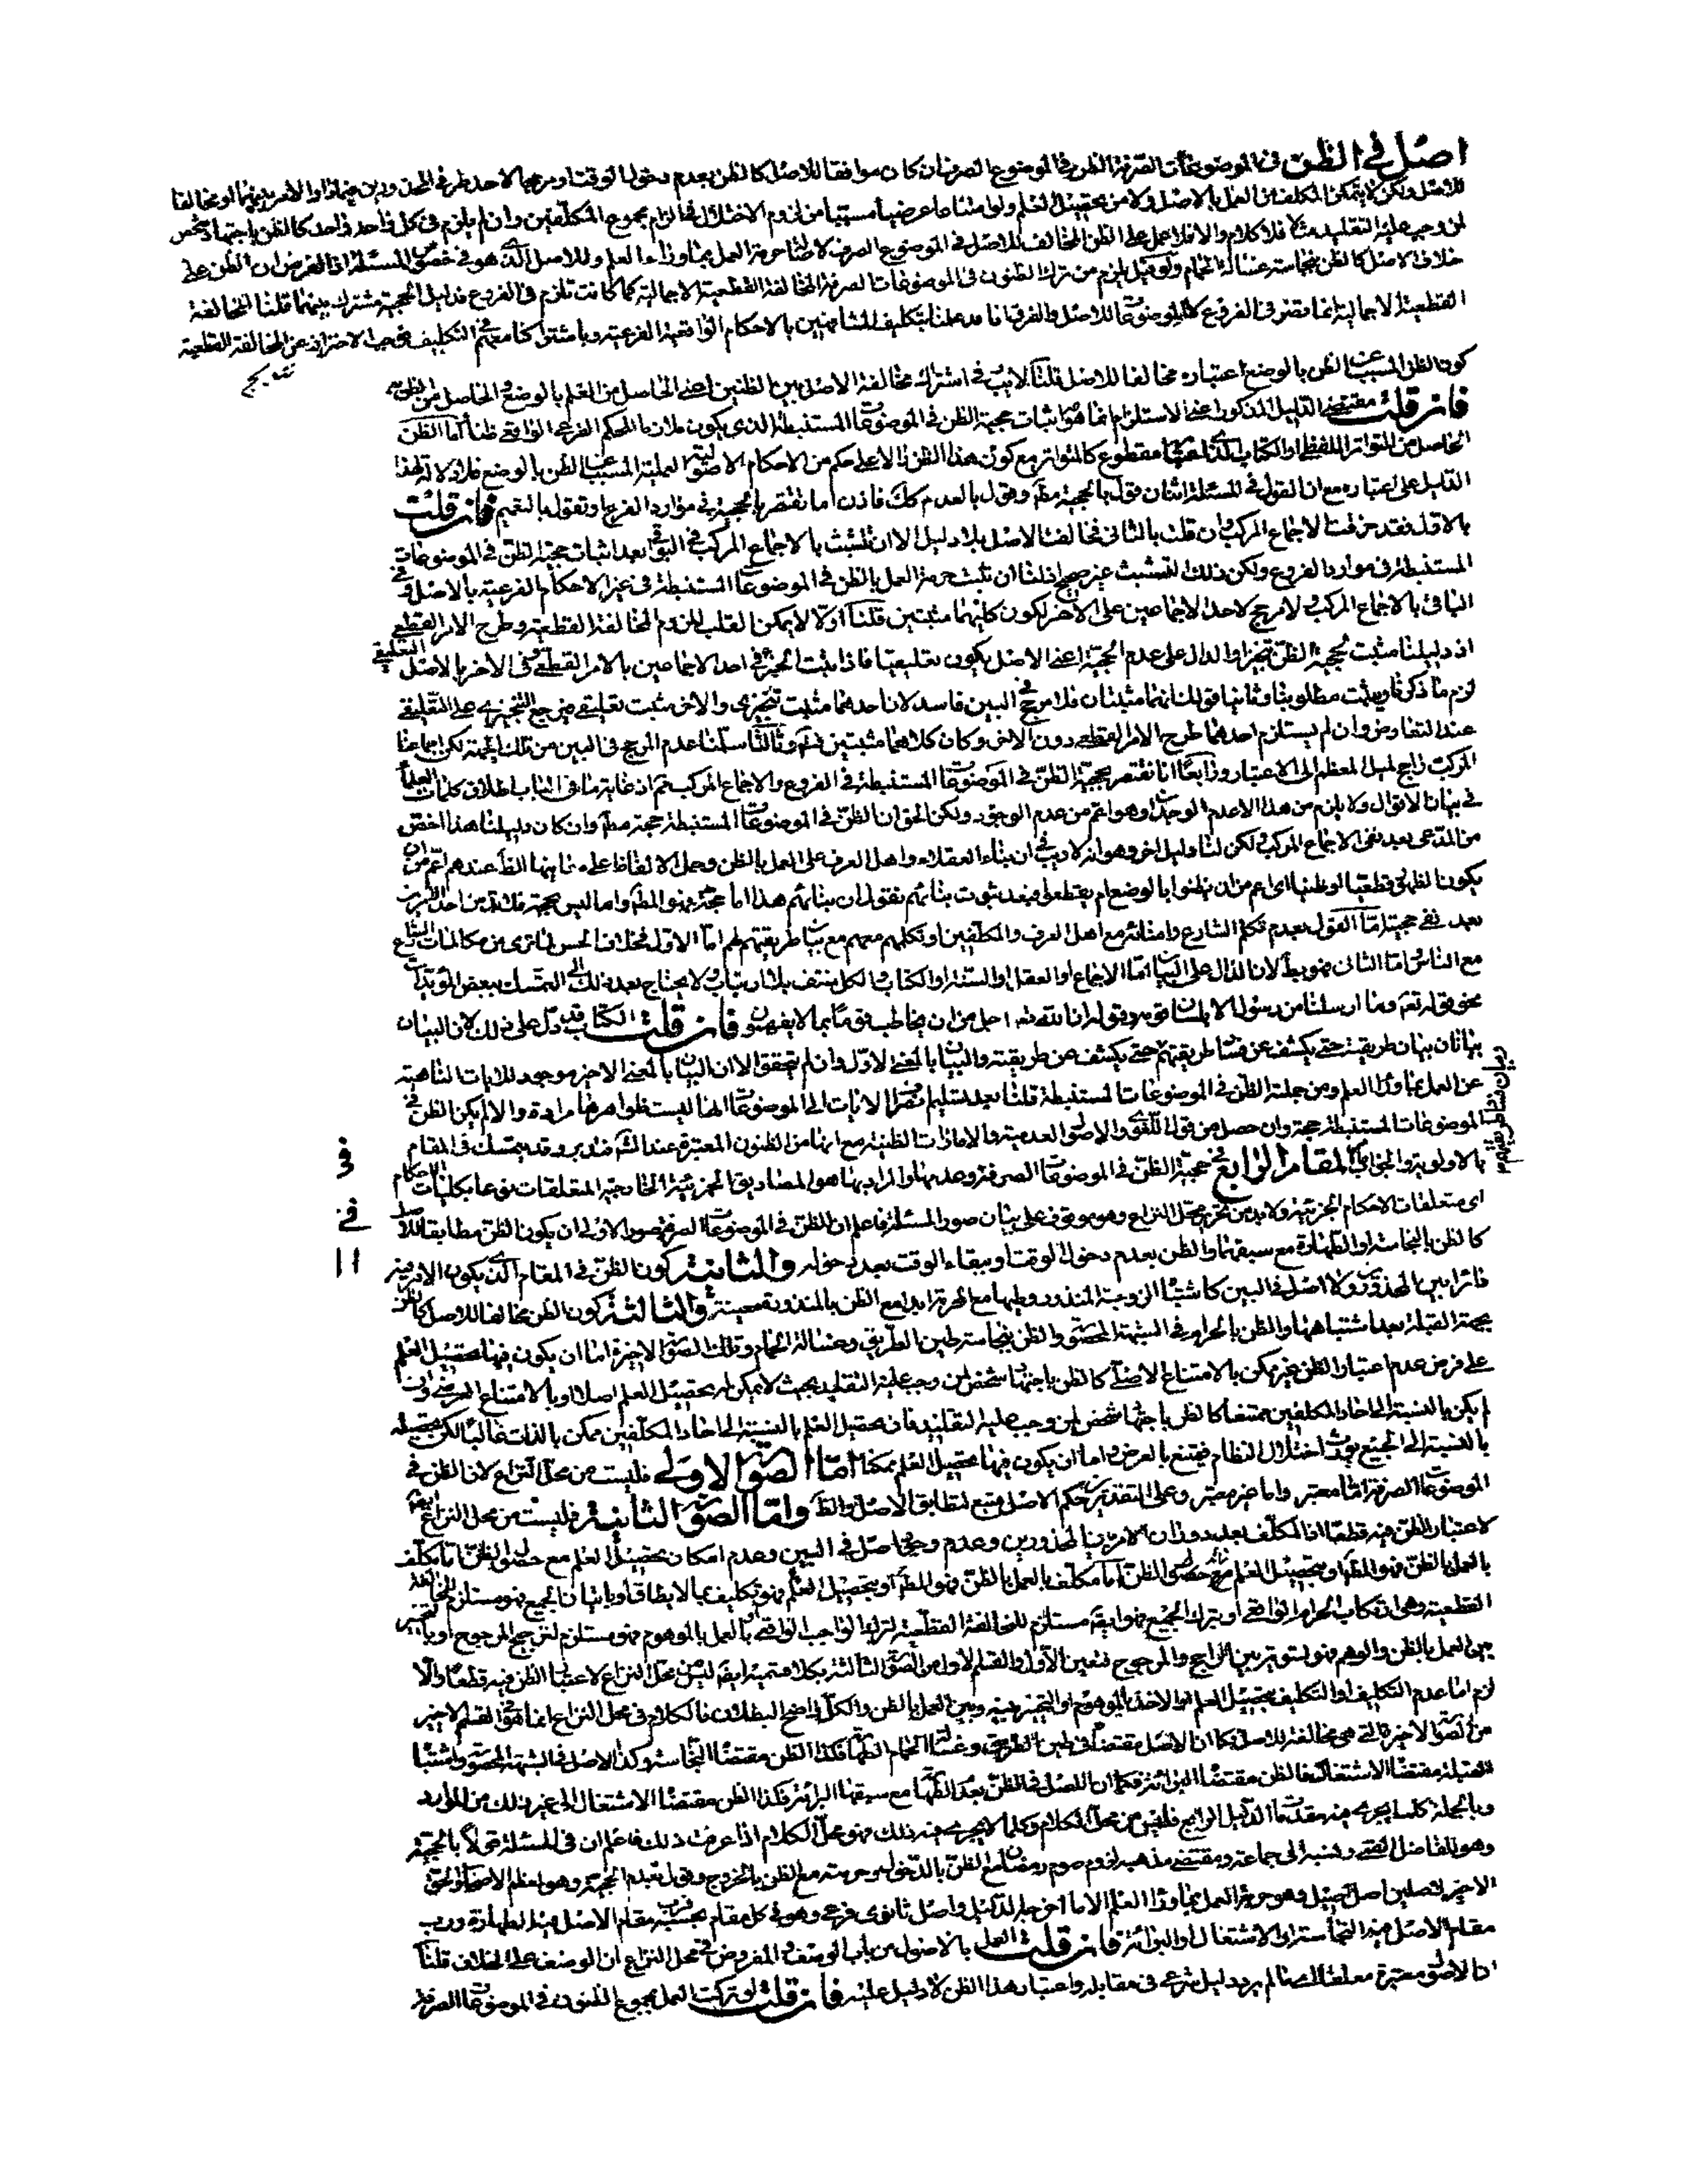 اصل في الظن في الموضوعات الصرفة الظن في الموضوع الصرف ان كان موافقا للاصل كالظن بعدم دخول الوقت او مرجحا لاحد طرفي
للاصل ولكن لا يتمكن المكلف من العمل بالاصل ولا من تحصيل العلم ولو امتناعا عرضيا مسببا من لزوم الاختلال في الزام مجموع المكلفين وان لم يلزم في كل واحد واحد كالظن باجتهاد شخص
لمن وجب عليه التقليد مثلا فلا كلام والا فلا عمل على الظن المخالف للاصل في الموضوع الصرف لاصالة حرمة العمل بما وراء العلم وللاصل الذي هو في خصوص المسئلة اذ الفرض ان الظن على
خلاف الاصل كالظن بنجاسة غسالة الحمام ولو قيل يلزم من ترك الظنون في الموضوعات الصرفة المخالفة القطعية الاجمالية كما كانت تلزم في الفروع فدليل الحجية مشترك بينهما قلنا المخالفة
القطعية الاجمالية انما تضر في الفروع لا الموضوعات للاصل والفرق انا قد علمنا بتكليف المشافهين بالاحكام الواقعية الفرعية وباشتراكنا معهم في التكليف فوجب الاحتراز عن المخالفة القطعية
كون الظن المسبب عن الظن بالوضع اعتباره مخالفا للاصل قلنا لا ريب في اشتراك مخالفة الاصل بين الظنين اعني الحاصل من العلم بالوضع والحاصل من الظن به
فان قلت مقتضى الدليل المذكور اعني الاستلزام انما هو اثبات حجية الظن في الموضوعات المستنبطة الذي يكون ملازما للحكم الفرعي الواقعي ظنا اما الظن
الحاصل من التواتر اللفظي او الكتاب مقطوع كالمتواتر مع كون هذا الظن دالا على حكم من الاحكام الاصولية العملية المسبب عن الظن بالوضع فلا دلالة لهذا
الدليل على اعتباره مع ان القول في المسئلة اثنان قول بالحجية مط وقول بالعدم كك فاذن اما تقتصر بالحجية في موارد الفروع او تقول بالتعميم فان قلت
بالاول فقد خرقت الاجماع المركب وان قلت بالثاني فخالفت الاصل بلا دليل الا ان تتشبث بالاجماع المركب في البواقي بعد اثبات حجية الظن في الموضوعات
المستنبطة في موارد الفروع ولكن ذلك التشبث غير صحيح اذ لنا ان نثبت حرمة العمل بالظن في الموضوعات المستنبطة في غير الاحكام الفرعية بالاصل وفي
الباقي بالاجماع المركب ولا مرجح لاحد الاجماعين على الاخر لكون كليهما مثبتين قلنا اولا لا يمكن القلب للزوم المخالفة القطعية وطرح الامر القطعي
اذ دليلنا مثبت لحجية الظن تنجيزا والدال على عدم الحجية اعني الاصل يكون تعليقيا فاذا ثبت الحجية في احد الاجماعين بالامر القطعي وفي الاخر بالاصل التعليقي
لزم ما ذكرنا ويثبت مطلوبنا وثانيا قولك انهما مثبتان فلا مرجح في البين فاسد لان احدهما مثبت تنجيزي والاخر مثبت تعليقي فيرجح التنجيزي على التعليقي
عند التعارض وان لم يستلزم احدهما طرح الامر القطعي دون الاخر وكان كلاهما مثبتين وثالثا سلمنا عدم المرجح في البين من تلك الجهة لكن اجماعنا
المركب راجح لميل المعظم الى الاعتبار ورابعا انا نقتصر بحجية الظن في الموضوعات المستنبطة في الفروع والاجماع المركب اذ غاية ما في الباب اطلاق كلمات العلماء
في بيان الاقوال ولا يلزم من هذا الا عدم الوجدان وهو اعم من عدم الوجود ولكن الحق ان الظن في الموضوعات المستنبطة حجة مط وان كان دليلنا هذا اخص
من المدعى بعد نفي الاجماع المركب لكن لنا دليل اخر وهو انه لا ريب في ان بناء العقلاء واهل العرف على العمل بالظن وحمل الالفاظ على معانيها الظ عندهم اعم من ان
يكون الظهور قطعيا او ظنيا اي اعم من ان يظنوا بالوضع ام يقطعوا فبعد ثبوت بنائهم نقول ان بنائهم هذا اما حجة فهو المط واما ليس بحجة فلا بد من احد الامرين
بعد نفي حجيته اما القول بعدم تكلم الشارع وامنائه مع اهل العرف والمكلفين او تكلمهم معهم مع بيان طريقتهم لهم اما الاول فخلاف الحس لما نرى من مكالمات الشارع
مع الناس اما الثاني فهو بط لان الدال على البيان اما الاجماع او العقل او السنة او الكتاب والكل منتف بلا ارتياب ولا يحتاج بعد ذلك الى التمسك ببعض المؤيدات
نحو قوله تعم وما ارسلنا من رسول الا بلسان قومه وقوله ان الله تعم اجل من ان يخاطب قوما بما لا يفهمون فان قلت الكتاب قد دل على ذلك لان البيان
بيانان بيان طريقته حتى يكشف عن فساد طريقتهم حتى يكشف عن طريقته والبيان بالمعنى الاول وان لم يتحقق الا ان البيان بالمعنى الاخير موجود للايات الناهية
عن العمل بما وراء العلم ومن جملته الظن في الموضوعات المستنبطة قلنا بعد تسليم انصراف الايات الى الموضوعات انها ليست ظواهرها مرادة والا لم يكن الظن في
الموضوعات المستنبطة حجة وان حصل من قول اللغوي والاصول العدمية والامارات الظنية مع انها من الظنون المعتبرة عند وقد يتمسك في المقام
بالاولوية والجواب المقام الرابع في حجية الظن في الموضوعات الصرفة وعدمها والمراد بها هو المصاديق الجزئية الخارجية المتعلقات نوعا بكليات الاحكام
اي متعلقات الاحكام الجزئية ولا بد من تحرير محل النزاع وهو موقوف على بيان صور المسئلة فاعلم ان الظن في الموضوعات الصرفة صور الاولى ان يكون الظن مطابقا للاصل
كالظن بالنجاسة او الطهارة مع سبقهما والظن بعدم دخول الوقت او ببقاء الوقت بعد دخوله والثانية كون الظن في المقام الذي يكون الامر فيه
دائرا بين المحذورين ولا اصل في البين كاشتباه الزوجة المنذور وطيها مع الظن بالمنذورة معينة والثالثة كون الظن مخالفا للاصل كالظن
بجهة القبلة بعد اشتباهها والظن بالحرام في الشبهة المحصورة والظن بنجاسة طين الطريق وغسالة الحمام وتلك الصورة الاخيرة اما ان يكون فيها تحصيل العلم
على فرض عدم اعتبار الظن غير ممكن بالامتناع الاصلي كالظن باجتهاد شخص لمن وجب عليه التقليد بحيث لا يمكن له تحصيل العلم اصلا او بالامتناع العرضي وان
لم يكن بالنسبة الى احاد المكلفين ممتنعا كالظن باجتهاد شخص لمن وجب عليه التقليد فان تحصيل العلم بالنسبة الى احاد المكلفين ممكن بالذات غالبا لكن تحصيله
بالنسبة الى الجميع يورث اختلال النظام فيمتنع بالعرض واما ان يكون فيها تحصيل العلم ممكنا اما الصورة الاولى فليست من محل النزاع لان الظن في
الموضوعات الصرفة اما معتبر واما غير معتبر وعلى التقديرين حكم الاصل متبع لتطابق الاصل والظن واما الصورة الثانية فليست من محل النزاع ايضا
لاعتبار الظن فيه قطعا اذ المكلف بعد دوران الامر بين المحذورين وعدم وجود اصل في البين وعدم امكان تحصيل العلم مع حصول الظن اما مكلف
بالعمل بالظن فهو المط او بتحصيل العلم فهو تكليف بما لا يطاق او باتيان الجميع فهو مستلزم للمخالفة
القطعية وهي ارتكاب الحرام الواقعي او بترك الجميع فهو ايضا مستلزم للمخالفة القطعية لترك الواجب الواقعي او بالعمل بالموهوم فهو مستلزم لترجيح المرجوح او بالتخيير
بين العمل بالظن والوهم فهو تسوية بين الراجح والمرجوح فتعين الاول والقسم الاول من الصورة الثالثة بكلا قسميه ايضا ليس من محل النزاع لاعتبار الظن فيه قطعا والا
لزم اما عدم التكليف او التكليف بتحصيل العلم او الاخذ بالموهوم او التخيير بينه وبين العمل بالظن والكل واضح البطلان فالكلام في محل النزاع انما هو في القسم الاخير
من الصورة الاخيرة التي هي مخالفة للاصل فكما ان الاصل مقتضاه في طين الطريق وغسالة الحمام الطهارة فكذا الظن مقتضاه النجاسة وكذا الاصل في الشبهة المحصورة واشتباه
القبلة مقتضاه الاشتغال فالظن مقتضاه البرائة فكما ان الاصل في الظن بعد الطهارة مع سبقها البرائة فكذا الظن مقتضاه الاشتغال الى غير ذلك من الموارد
وبالجملة كلما يجري فيه مقدمات الدليل الرابع فليس من محل الكلام وكلما لا يجري فيه ذلك فهو محل الكلام اذا عرفت ذلك فاعلم ان في المسئلة قولا بالحجية
وهو للفاضل القمي ونسبه الى جماعة ومقتضى مذهبه لزوم صوم رمضان مع الظن بالدخول وحرمته مع الظن بالخروج وقول بعدم الحجية وهو لمعظم الاصحاب والحق
الاخير لاصلين اصل اصيل وهو حرمة العمل بما وراء العلم الا ما اخرجه الدليل واصل ثانوي فرعي وهو في كل مقام بحسبه فرب مقام الاصل فيه الطهارة ورب
مقام الاصل فيه النجاسة او الاشتغال او البرائة فان قلت العمل بالاصول من باب الوصف والمفروض في محل النزاع ان الوصف على الخلاف قلنا
ان الاصول معتبرة مطلقا ما لم يرد دليل شرعي في مقابله واعتبار هذا الظن لا دليل عليه فان قلت لو تركت العمل بمجموع الظنون في الموضوعات الصرفة
بيان فساد طريقتهم